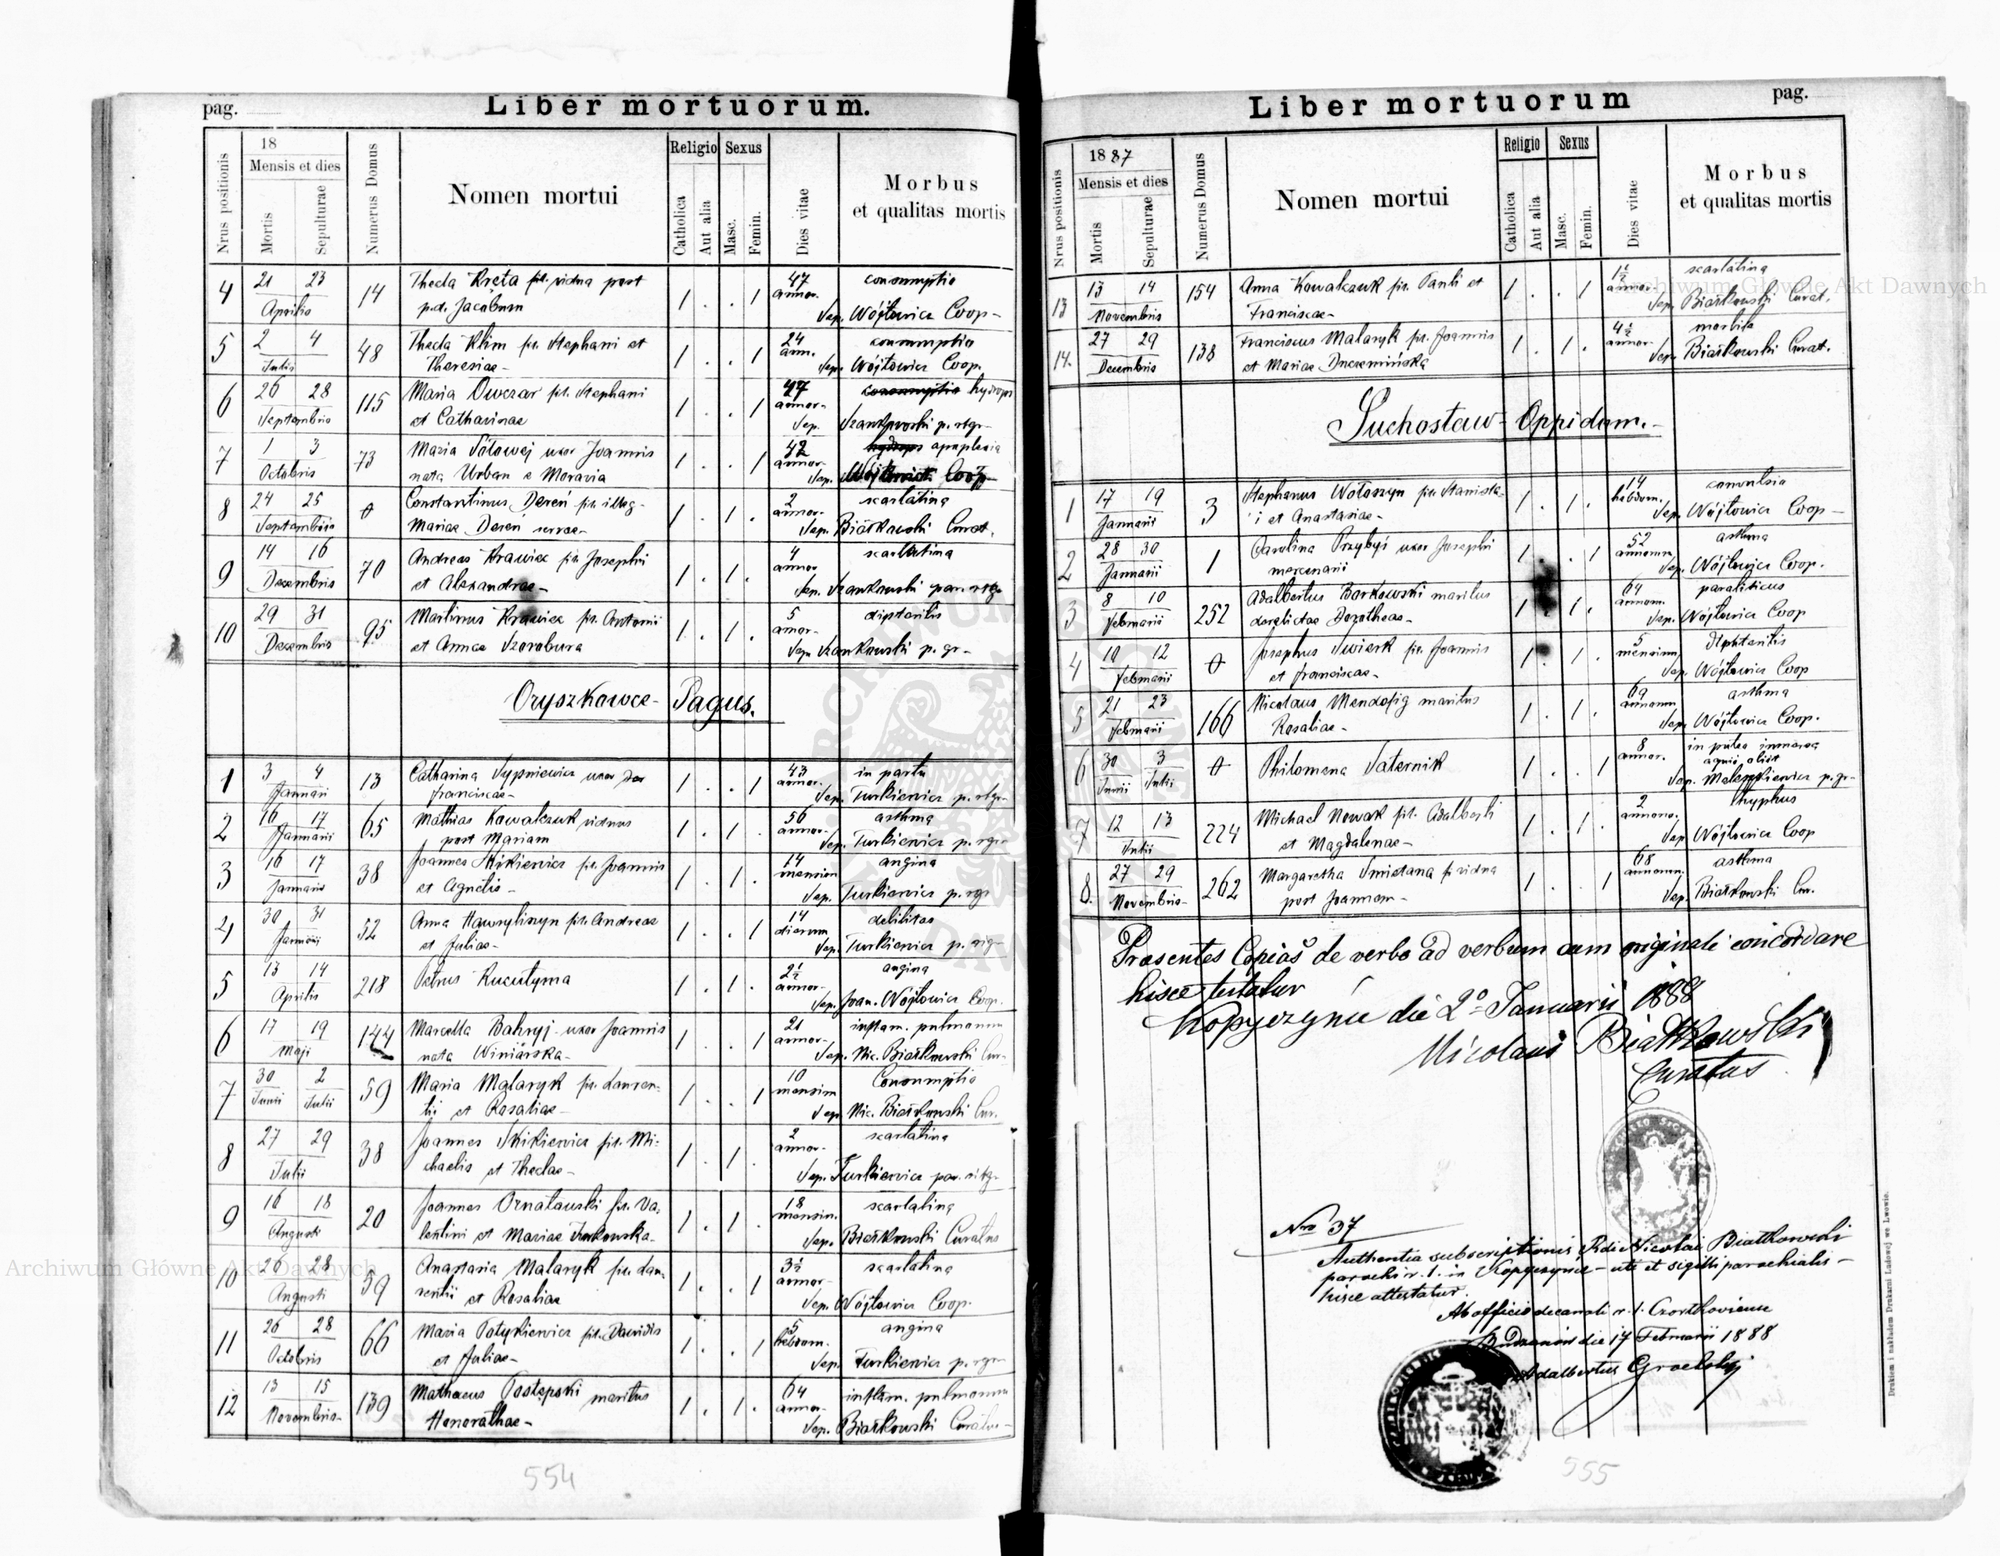 pag.
Liber mortuorum.
Nrus positionis
18
Mensis et dies
Mortis
Sepulturae
Numerus Domus
Nomen mortui
Religio
Catholica
Aut alia
Sexus
Masc.
Femin.
Dies vitae
Morbus
et qualitas mortis
4 21 23 Aprilis 14 Thecla Kręta fil. vidua post 1 . . 1 47 annor. consumptio
p.d. Jacobum Sep. Wójtowicz Coop
5 2 4 Julii 48 Thecla Klim fil. Stephani et 1 . . 1 24 ann. consumptio
Theresiae Sep. Wójtowicz Coop.
6 26 28 Septembris 115 Maria Owczar fil. Stephani 1 . . 1 47 annor. consumptio hydrops
et Catharinae Sep. Szankowski p. rtgr
7 1 3 Octobris 73 Maria uxor Joannis 1 . . 1 42 annor. hydrops apoplexia
nata Urban e Moravia Sep. Wójtowicz Coop
8 24 25 Septembris 0 Constantinus Dereń fil. illeg. 1 . 1 . 2 annor. scarlatina
Mariae Dereń servae Sep. Białkowski Curat.
9 14 16 Decembris 70 Andreas Krawiec fil. Josephi 1 . 1 . 4 annor scarlatina
et Alexandrae Sep. Szankowski par. rtgr
10 29 31 Decembris 95 Martinus Krawiec fil. Antonii 1 . 1 . 5 annor. diptaritis
et Annae Szorobura Sep. Szankowski p. gr
Oryszkowce Pagus.
1 3 4 Januari 13 Catharina Sypniewicz uxor 1 . . 1 43 annor. in partu
Franciscae Sep. Turkiewicz p. rtgr
2 16 17 Januarii 65 Mathias Kowalczuk viduus 1 . 1 . 56 annor. asthma
post Mariam Sep. Turkiewicz p. rgr
3 16 17 Januarii 38 Joannes Skikiewicz fil. Joannis 1 . 1 . 14 mensium angina
et Agnetis Sep. Turkiewicz p. rgr
4 30 31 Januarii 52 Anna Hawryliszyn fil. Andreae 1 . . 1 14 dierum debilitas
et Juliae Sep. Turkiewicz p. rtgr
5 13 14 Aprilis 218 Petrus Kucutyma 1 . 1 . 2½ annor. angina
Sep. Joan. Wójtowicz Coop.
6 17 19 Maji 144 Marcella Bahryj uxor Joannis 1 . . 1 21 annor. inflam. pulmonum
nata Winiarska Sep. Nic. Białkowski Cur.
7 30 2 Junii Julii 59 Maria Malaryk fil. Lauren- 1 . . 1 10 mensium Consumptio
tii et Rosaliae Sep. Nic. Białkowski Cur.
8 27 29 Julii 38 Joannes Skikiewicz fil. Mi- 1 . 1 . 2 annor. scarlatina
chaelis et Theclae Sep. Turkiewicz par. ritgr
9 16 18 Augusti 20 Joannes Ornatauski fil. Va- 1 . 1 . 18 mensium. scarlatina
lentini et Mariae Turkowska Sep. Białkowski Curatus
10 26 28 Augusti 59 Anastasia Malaryk fil. Lau- 1 . . 1 3½ annor scarlatina
rentii et Rosaliae Sep. Wójtowicz Coop.
11 26 28 Octobris 66 Maria Potykiewicz fil. Davidis 1 . . 1 5 hebdom. angina
et Juliae Sep. Turkiewicz p. rgr
12 13 15 Novembris 139 Mathaeus Postępski maritus 1 . 1 . 64 annor. inflam. pulmonum
Honorathae Sep. Białkowski Curatus
554
Liber mortuorum
pag.
Nrus positionis
1887
Mensis et dies
Mortis
Sepulturae
Numerus Domus
Nomen mortui
Religio
Catholica
Aut alia
Sexus
Masc.
Femin.
Dies vitae
Morbus
et qualitas mortis
13 13 14 Novembris 154 Anna Kowalczuk fil. Pauli et 1 . . 1 1½ annor. scarlatina
Franciscae Sep. Białkowski Curat.
14. 27 29 Decembris 138 Franciscus Malaryk fil. Joannis 1 . 1 . 4½ annor. morbile
et Mariae Sep. Białkowski Curat.
Suchostaw Oppidum.
1 17 19 Januarii 3 Stephanus Wołoszyn fil. Stanisla- 1 . 1 . 14 hebdom. convulsio
i et Anastasiae Sep. Wójtowicz Coop
2 28 30 Januarii 1 Carolina Przybyś uxor Josephi 1 . . 1 52 annorum asthma
mercenarii Sep. Wójtowicz Coop.
3 8 10 Februarii 252 Adalbertus Borkowski maritus 1 . 1 . 64 annorum. paraliticus
derelictae Dorotheae Sep. Wójtowicz Coop
4 10 12 Februarii 0 Josephus Swierk fil. Joannis 1 . 1 . 5 mensium Diphtaritis
et Franciscae Sep. Wójtowicz Coop
5 21 23 Februarii 166 Nicolaus Mendofig maritus 1 . 1 . 69 annorum asthma
Rosaliae Sep. Wójtowicz Coop.
6 30 3 Junii Julii 0 Philomena Saternik 1 . . 1 8 annor. in putea immersa
aquis Sep. p. gr
7 12 13 Julii 224 Michael Nowak fil. Adalberti 1 . 1 . 2 annorum. thyphus
et Magdalenae Sep. Wójtowicz Coop
8. 27 29 Novembris 262 Margaretha Smietana vidua 1 . . 1 68 annorum. asthma
post Joannem Sep. Białkowski Cur.
Praesentes Copias de verbo ad verbum cum originali concordare
hisce testatur
Kopyczyńce die 2º Januarii 1888
Nicolaus Białkowski
Curatus
Nro 37
Authentia subscriptionis Rdi Nicolai Białkowski
parochi r. l. in Kopyczynce uti et sigilli parochialis
hisce attestatur.
Ab officio decanali r. l. Czortkoviensi
Budzanów die 17 Februarii 1888
Adalbertus Grocholskyj
555
Drukiem i nakładem Drukarni Ludowej we Lwowie.
Archiwum Główne Akt Dawnych
Archiwum Główne Akt Dawnych